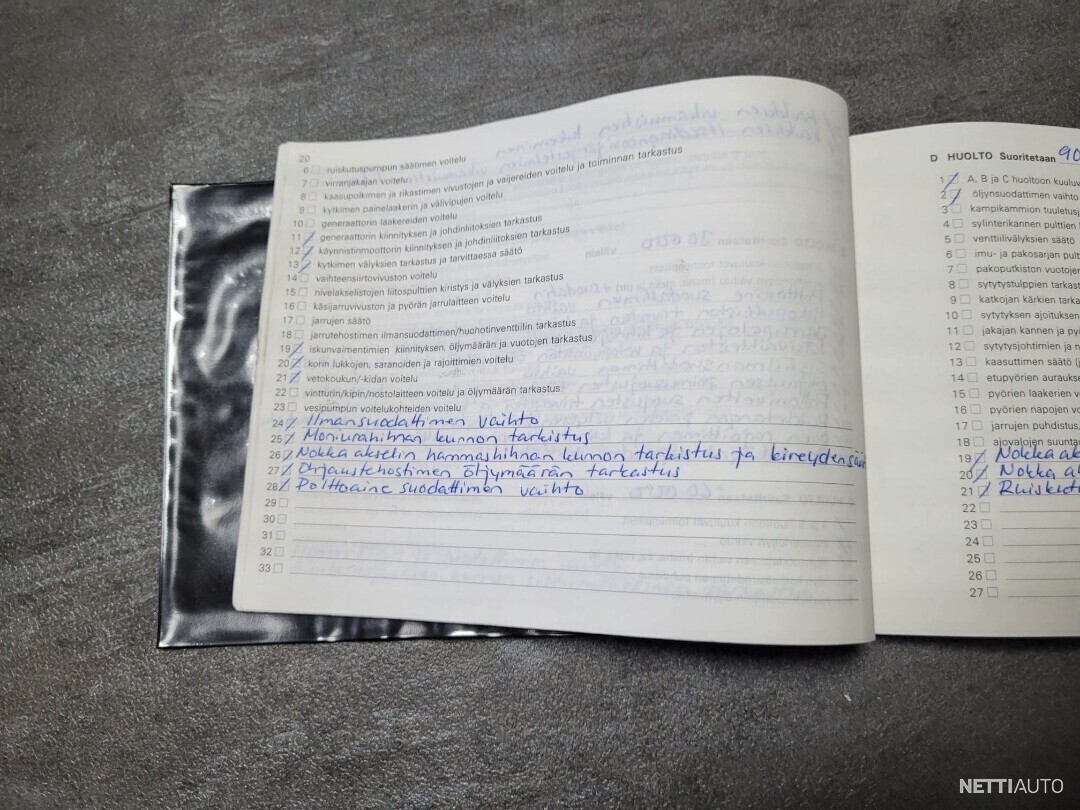 20
6 ruiskutuspumpun säätimen voitelu
7 virranjakajan voitelu
8 kaasupolkimen ja rikastimen vivustojen ja vaijereiden voitelu ja toiminnan tarkastus
9 kytkimen painelaakerin ja välivipujen voitelu
10 generaattorin laakereiden voitelu
11 generaattorin kiinnityksen ja johdinliitoksien tarkastus
12 käynnistinmoottorin kiinnityksen ja johdinliitoksien tarkastus
13 kytkimen välyksien tarkastus ja tarvittaessa säätö
14 vaihteensiirtovivuston voitelu
15 nivelakselistojen liitospulttien kiristys ja välyksien tarkastus
16 käsijarruvivuston ja pyörän jarrulaitteen voitelu
17 jarrujen säätö
18 jarrutehostimen ilmansuodattimen/huonotinventtiilin tarkastus
19 iskunvaimentimien kiinnityksen, öljymäärän ja vuotojen tarkastus
20 korin lukkojen, saranoiden ja rajoittimien voitelu
21 vetokoukun/-kidan voitelu
22 vintturin/kipin/nostolaitteen voitelu ja öljymäärän tarkastus
23 vesipumpun voitelukohteiden voitelu
24 Ilmansuodattimen vaihto
25 Moniurahihnan kunnon tarkistus
26 Nokka akselin hammashihnan kunnon tarkistus ja kireyden
27 Ohjaustehostimen öljymäärän tarkastus
28 Polttoaine suodattimen vaihto
29
30
31
32
33
D HUOLTO Suoritetaan 90
1 A, B ja C huoltoon kuuluv
2 öljynsuodattimen vaihto
3 kampikammion tuuletusj
4 sylinterikannen pulttien
5 venttiilivälyksien säätö
6 imu- ja pakosarjan pult
7 pakoputkiston vuotojen
8 sytytystulppien tarkast
9 katkojan kärkien tarka
10 sytytyksen ajoituksen
11 jakajan kannen ja py
12 sytytysjohtimien ja n
13 kaasuttimen säätö (j
14 etupyörien auraukse
15 pyörien laakerien v
16 pyörien napojen v
17 jarrujen puhdistus,
18 ajovalojen suuntau
19 Nokka ak
20 Nokka ak
21 Ruiskutu
22
23
24
25
26
27
NETTIAUTO